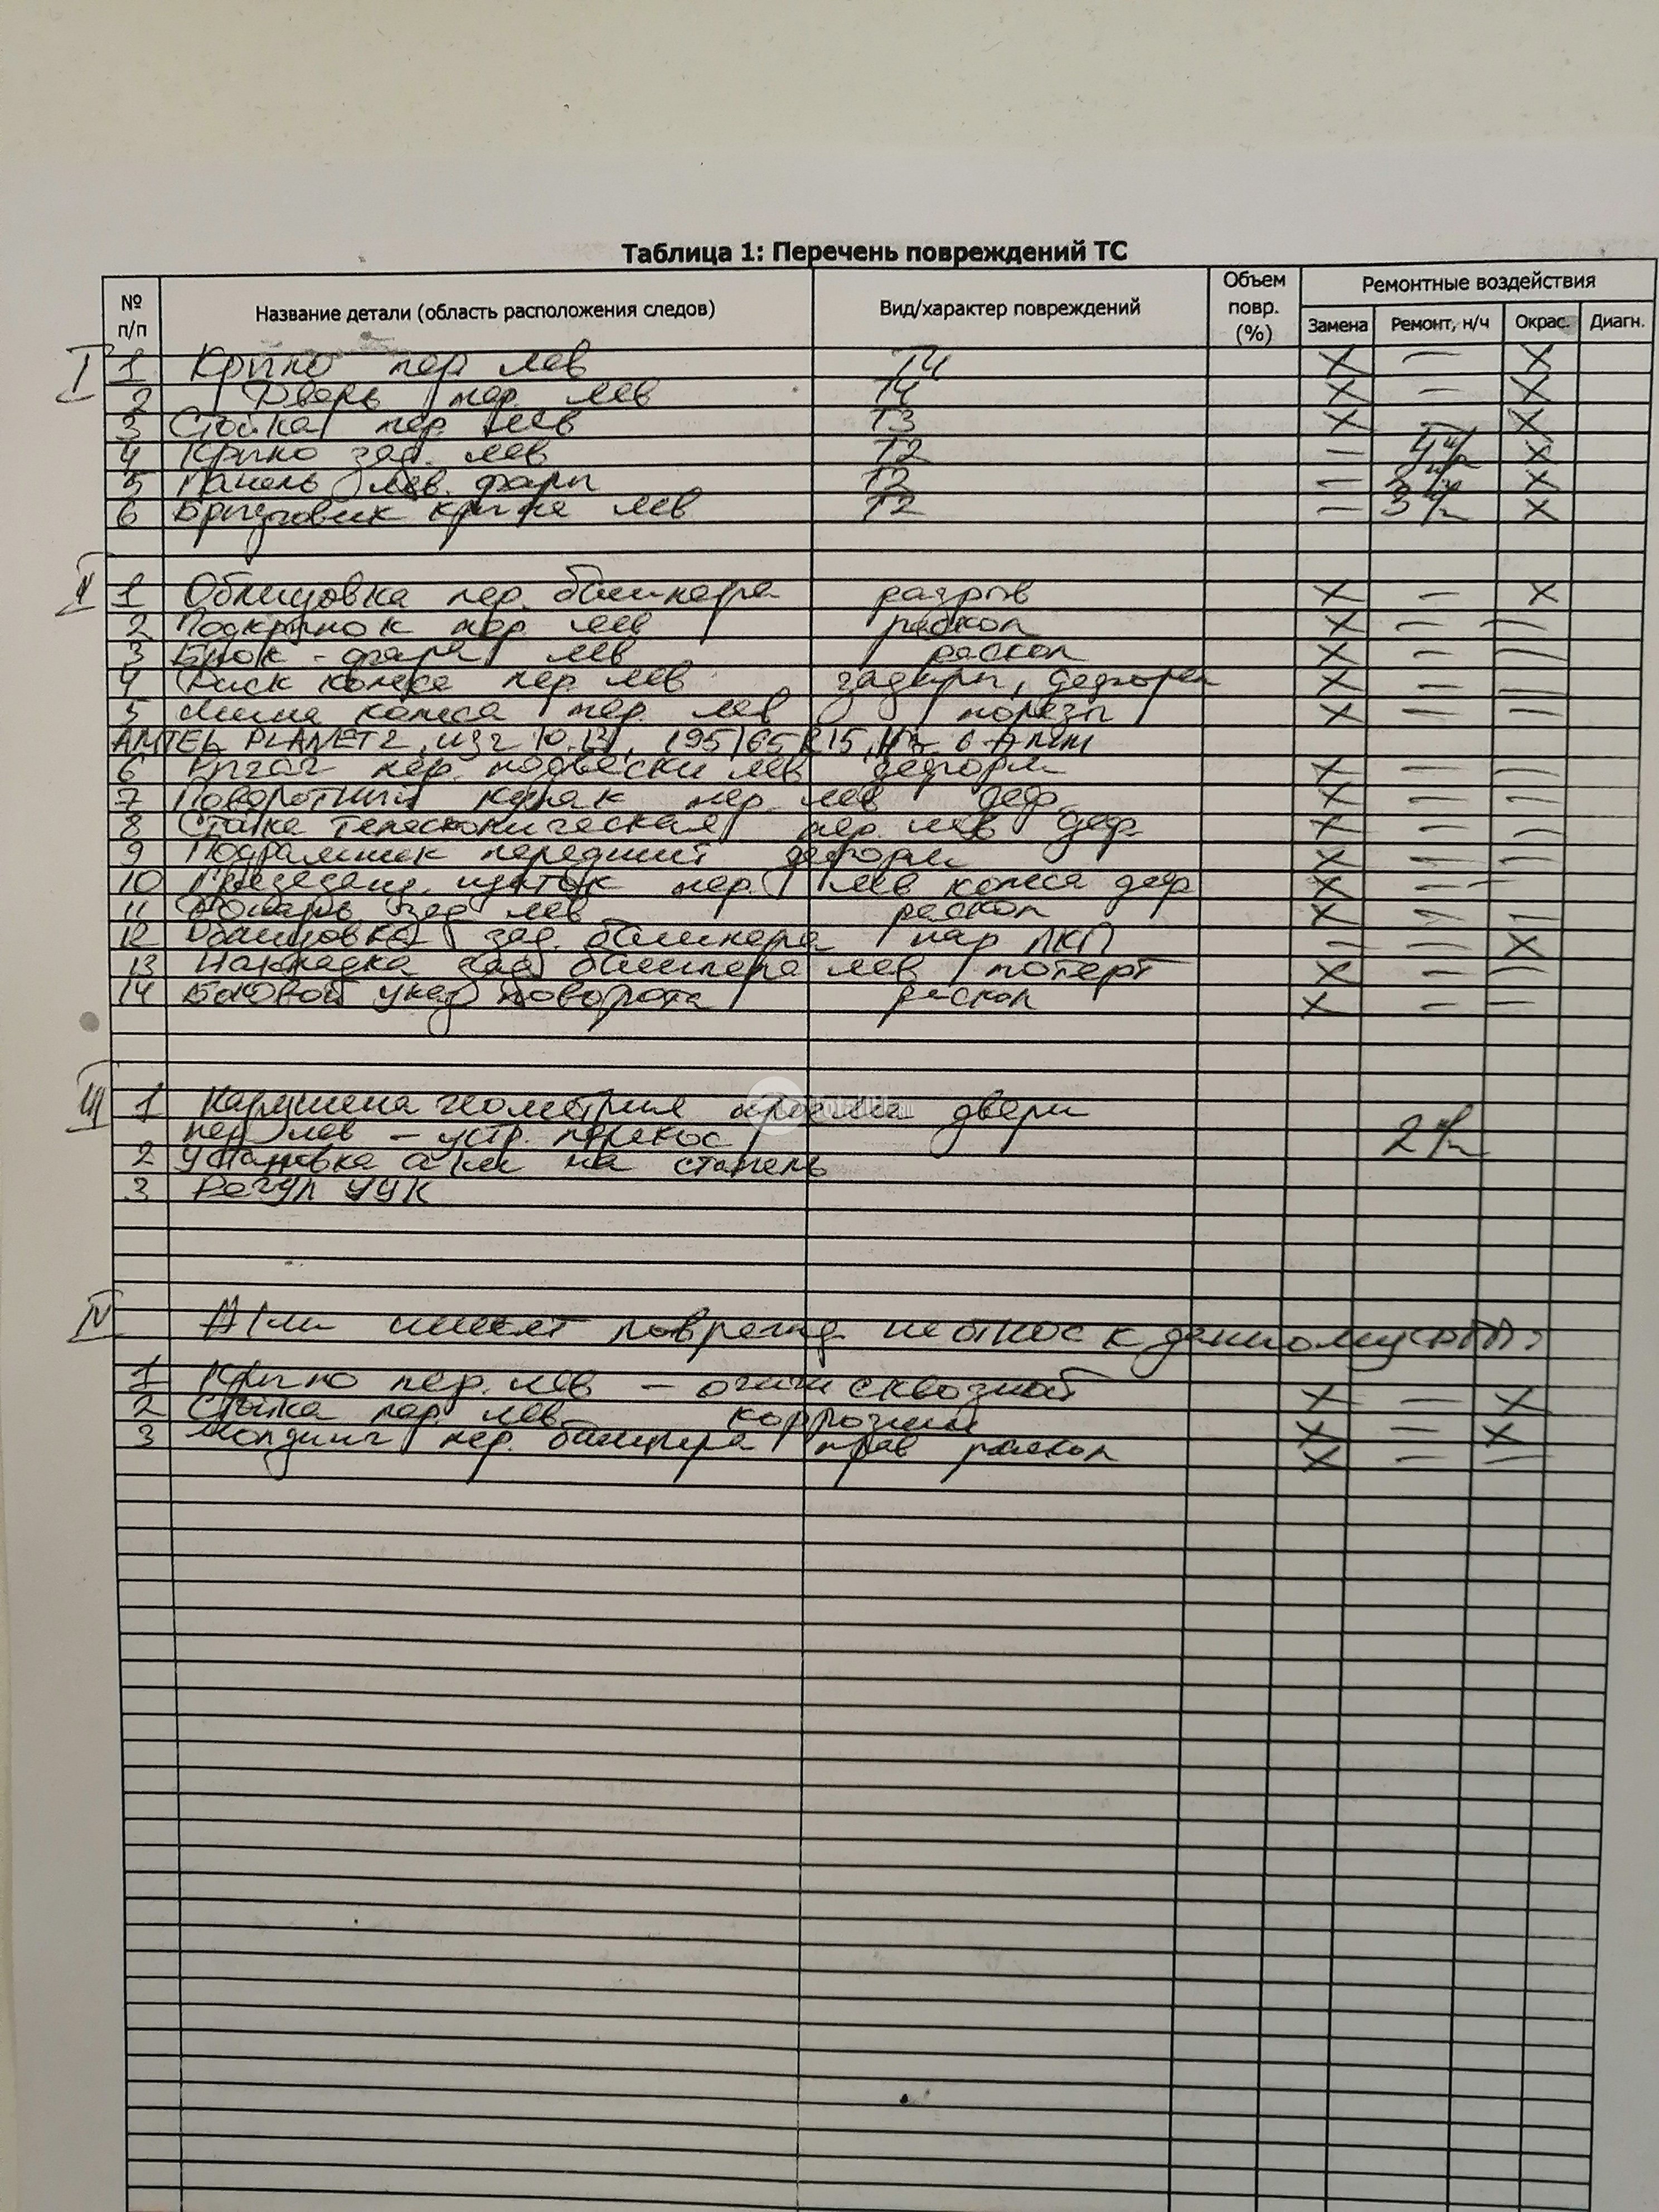 Таблица 1: Перечень повреждений ТС
№ п/п Название детали (область расположения следов) Вид/характер повреждений Объем повр. (%) Ремонтные воздействия
Замена Ремонт, н/ч Окрас. Диагн.
I 1 Крыло пер лев Т4 X — X
2 Дверь пер лев Т4 X — X
3 Стойка пер лев Т3 X — X
4 Крыло зад. лев Т2 — X
5 Панель лев. фары Т2 — X
6 Брызговик крыла лев Т2 — 3 ч/ X
II 1 Облицовка пер. бампера разрыв X — X
2 Подкрылок пер лев раскол X — —
3 Блок-фара лев раскол X — —
4 Диск колеса пер лев задиры, деформ X — —
5 Шина колеса пер. лев порезы X — —
AMTEL PLANET 2, изг 10.12, 195/65 R15, 6-7 мм
6 Рычаг пер. подвески лев деформ X — —
7 Поворотный кулак пер. лев деф X — —
8 Стойка телескопическая пер. лев деф X — —
9 Подрамник передний деформ X — —
10 Грязезащ. щиток пер. лев колеса деф X — —
11 Фонарь зад лев раскол X — —
12 Облицовка зад. бампера цар ЛКП — — X
13 Накладка зад бампера лев потерт X — —
14 Боковой указ поворота раскол X — —
III 1 Нарушена геометрия проема двери
пер лев — устр. перекос 2 ч/
2 Установка а/м на стапель
3 Регул УУК
IV А/м имеет поврежд. не относ к данному ДТП:
1 Крыло пер. лев — очаги сквозной X — X
2 Стойка пер. лев коррозии X — X
3 Молдинг пер. бампера прав раскол X — —